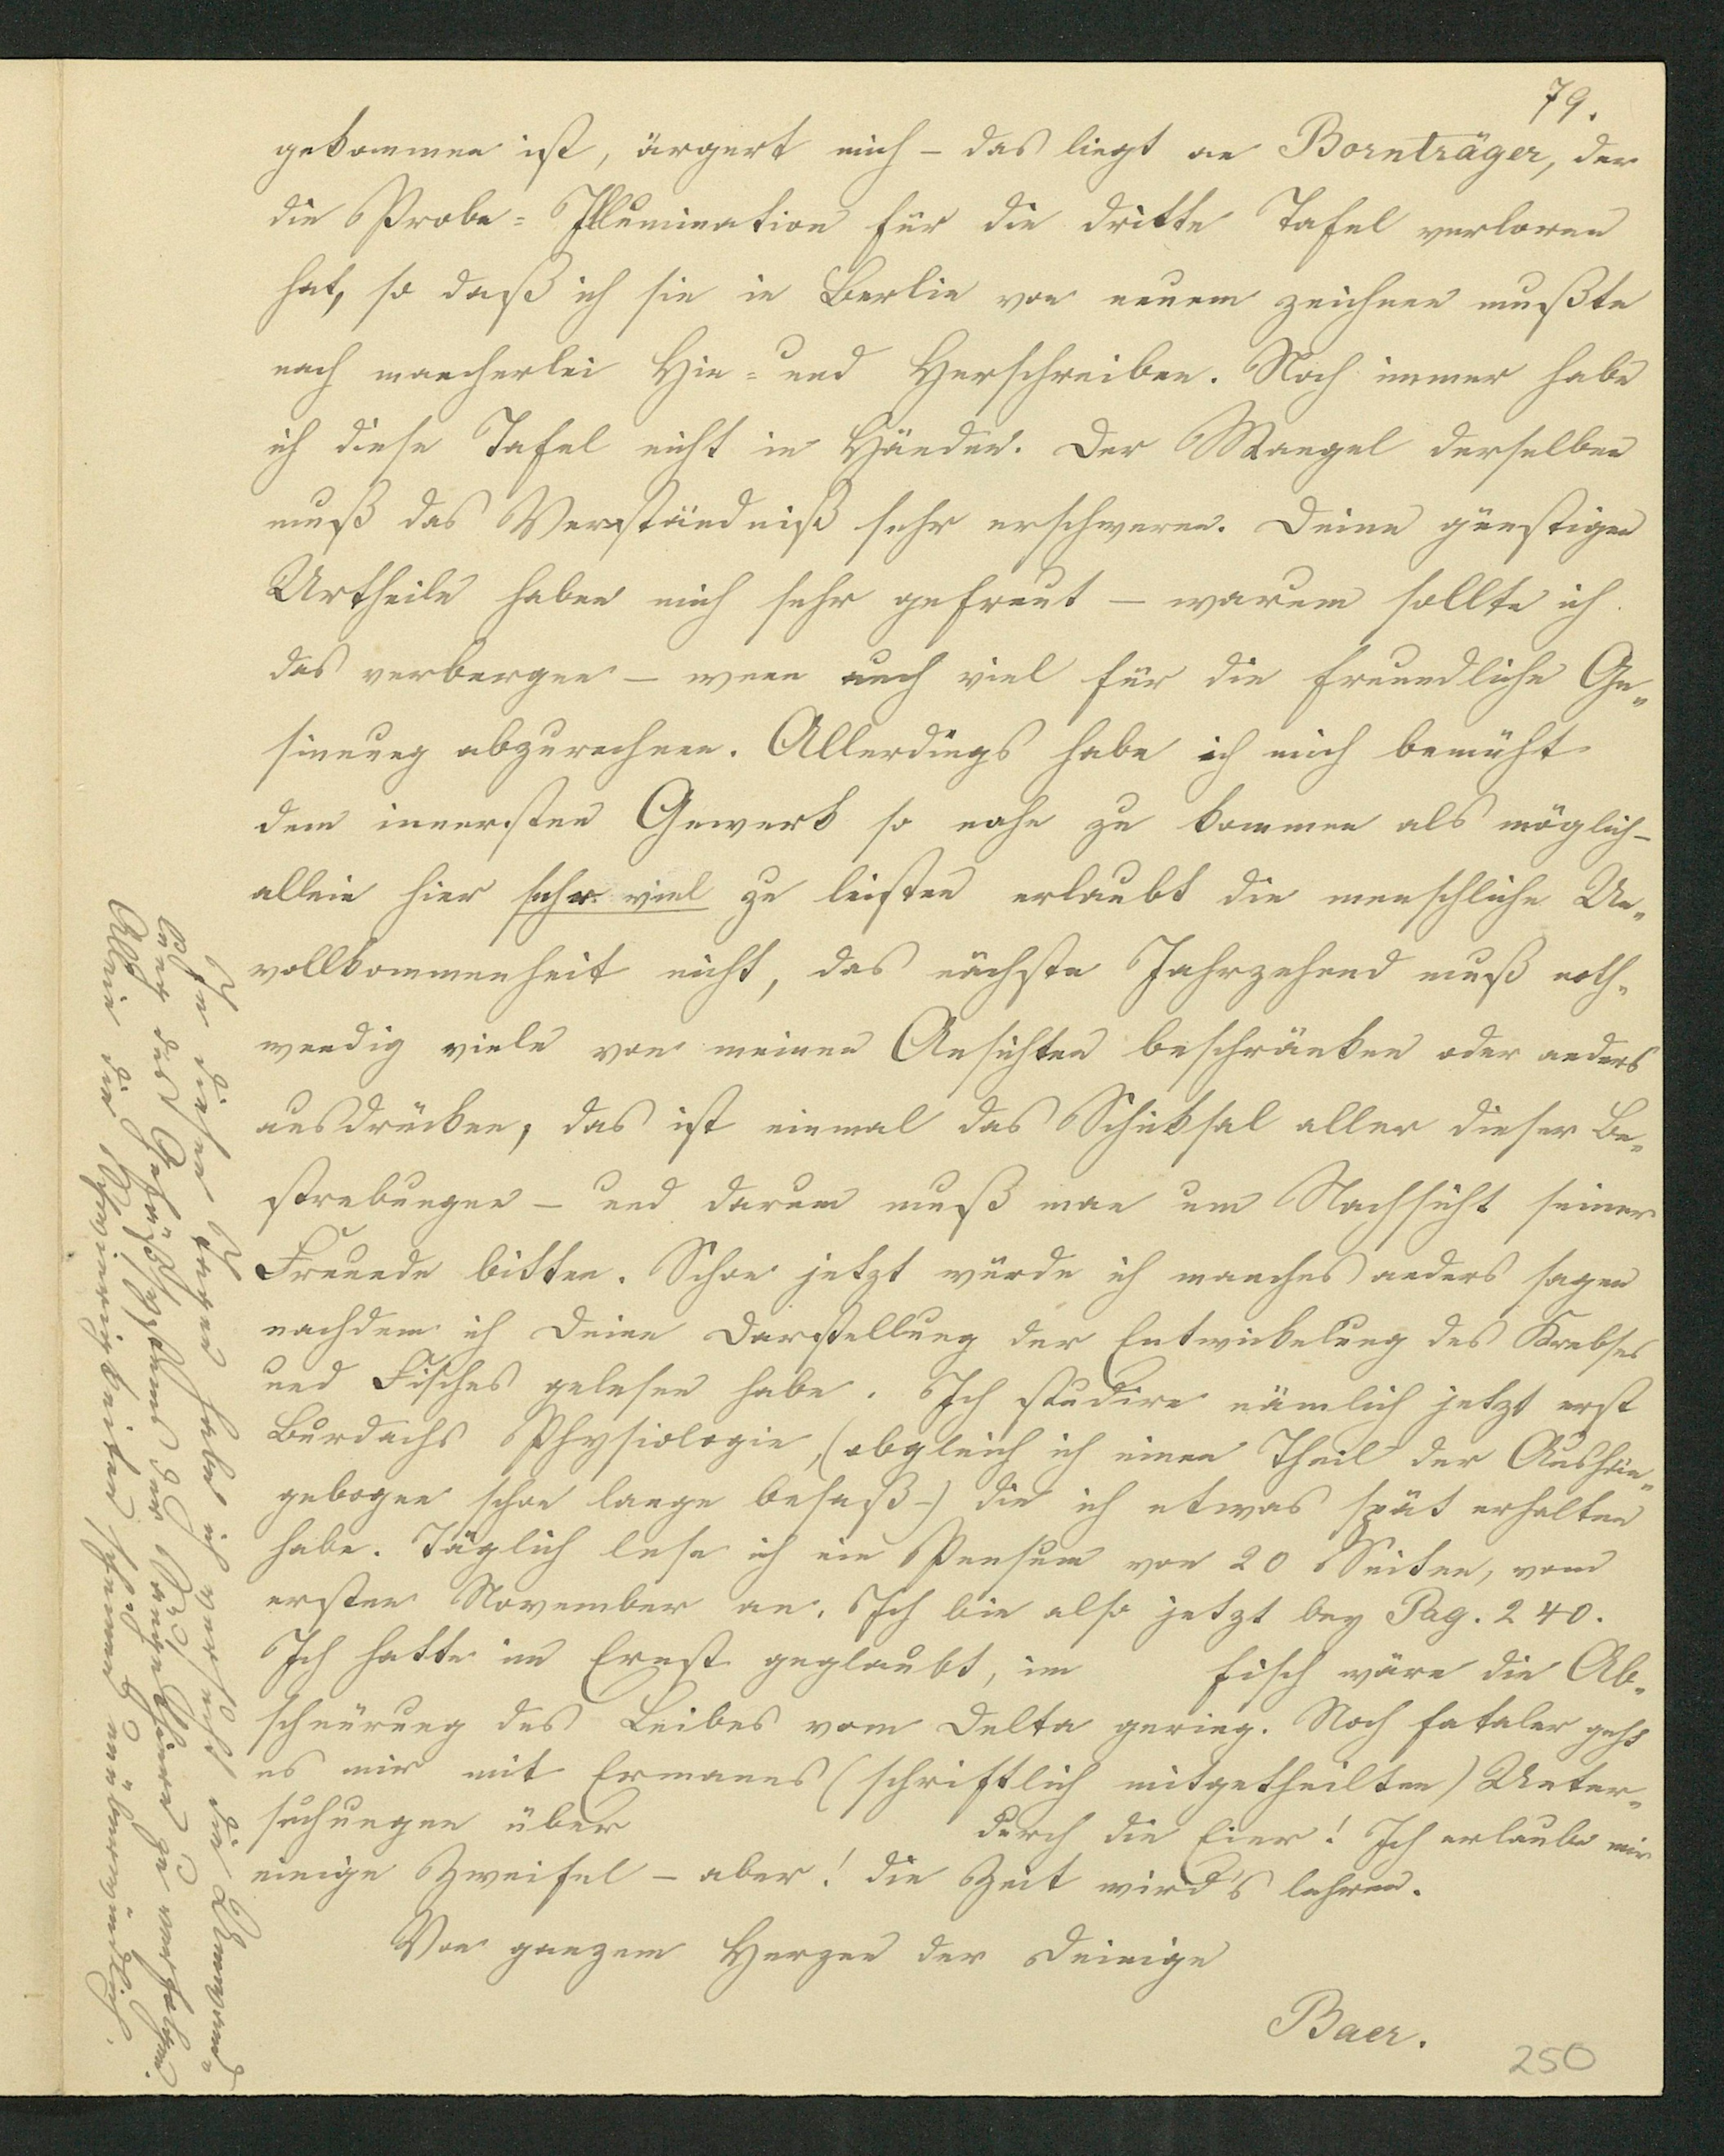 79.
gekommen ist, ärgert mich – das liegt an Bornträger, der
die Probe-Illumination für die dritte Tafel verloren
hat, so daß ich sie in Berlin von neuem zeichnen mußte
nach mancherlei Hin- und Herschreiben. Noch immer habe
ich diese Tafel nicht in Händen. Der Mangel derselben
muß das Verständniß sehr erschweren. Deine günstigen
Urtheile haben mich sehr gefreut – warum sollte ich
das verbergen – wenn auch viel für die freundliche Ge-
sinnung abzurechnen. Allerdings habe ich mich bemüht
dem innersten Gewerk so nahe zu kommen als möglich –
allein hier sehr viel zu leisten erlaubt die menschliche Un-
vollkommenheit nicht, das nächste Jahrzehend muß noth-
wendig viele von meinen Ansichten beschränken oder anders
ausdrücken, das ist einmal das Schicksal aller dieser Be-
strebungen – und darum muß man um Nachsicht seiner
Freunde bitten. Schon jetzt würde ich manches anders sagen
nachdem ich Deine Darstellung der Entwickelung des Krebses
und Fisches gelesen habe. Ich studire nämlich jetzt erst
Burdachs Physiologie, (obgleich ich einen Theil der Aushän-
gebogen schon lange besaß –) die ich etwas spät erhalten
habe. Täglich lese ich ein Pensum von 20 Seiten, vom
ersten November an. Ich bin also jetzt bey Pag. 240.
Ich hatte im Ernst geglaubt, im Fisch wäre die Ab-
schnürung des Leibes vom Delta gering. Noch fataler geht
es mir mit Ermanns (schriftlich mitgetheilten) Unter-
suchungen über durch die Eier! Ich erlaube mir
einige Zweifel – aber! die Zeit wird's lehren.
Von ganzem Herzen der Deinige
Baer.
250
In diesen Tagen habe ich versucht die Verwand-
lung des Gefäßsystems der zu verfolgen.
Allein die Schwierigkeiten scheinen unüberwindlich.